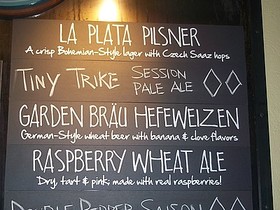 LA PLATA PILSNER
A crisp Bohemian-Style lager with Czech Saaz hops
TINY TRIKE SESSION PALE ALE
GARDEN BRÄU HEFEWEIZEN
German-Style wheat beer with banana & clove flavors
RASPBERRY WHEAT ALE
Dry, tart & pink; made with real raspberries!
DOUBLE PEPPER SAISON